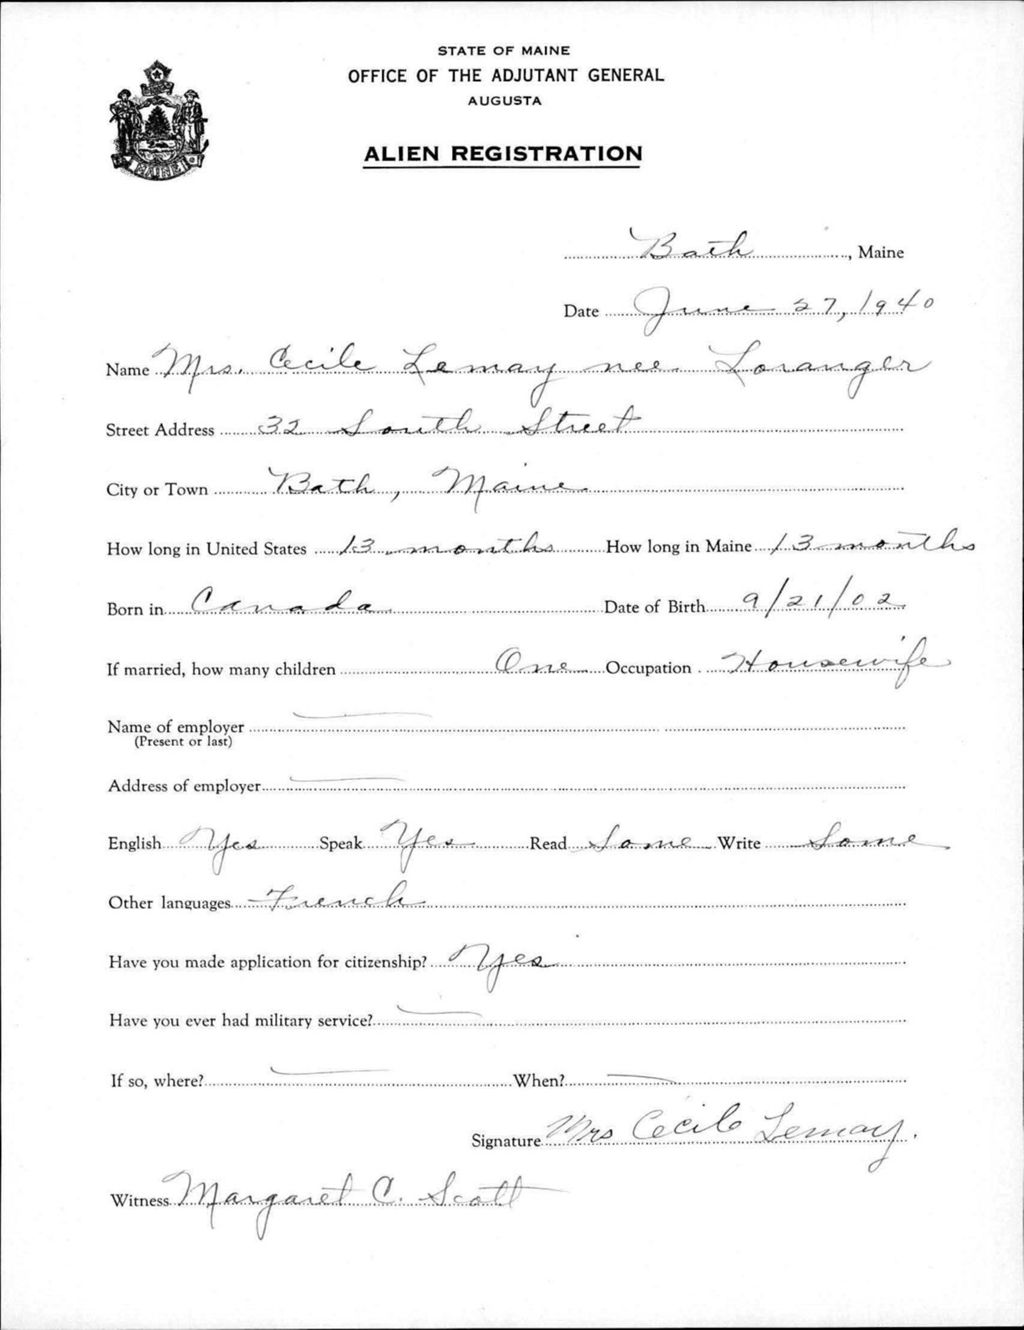 STATE OF MAINE
OFFICE OF THE ADJUTANT GENERAL
AUGUSTA
ALIEN REGISTRATION
MAINE
Bath, Maine
Date June 27, 1940
Name Mrs. Cecile Lemay nee Loranger
Street Address 32 South Street
City or Town Bath, Maine
How long in United States 13 months How long in Maine 13 months
Born in Canada Date of Birth 9/21/02
If married, how many children One Occupation Housewife
Name of employer —
(Present or last)
Address of employer —
English Yes Speak Yes Read Some Write Some
Other languages French
Have you made application for citizenship? Yes
Have you ever had military service? —
If so, where? — When? —
Signature Mrs Cecile Lemay.
Witness Margaret C. Scott